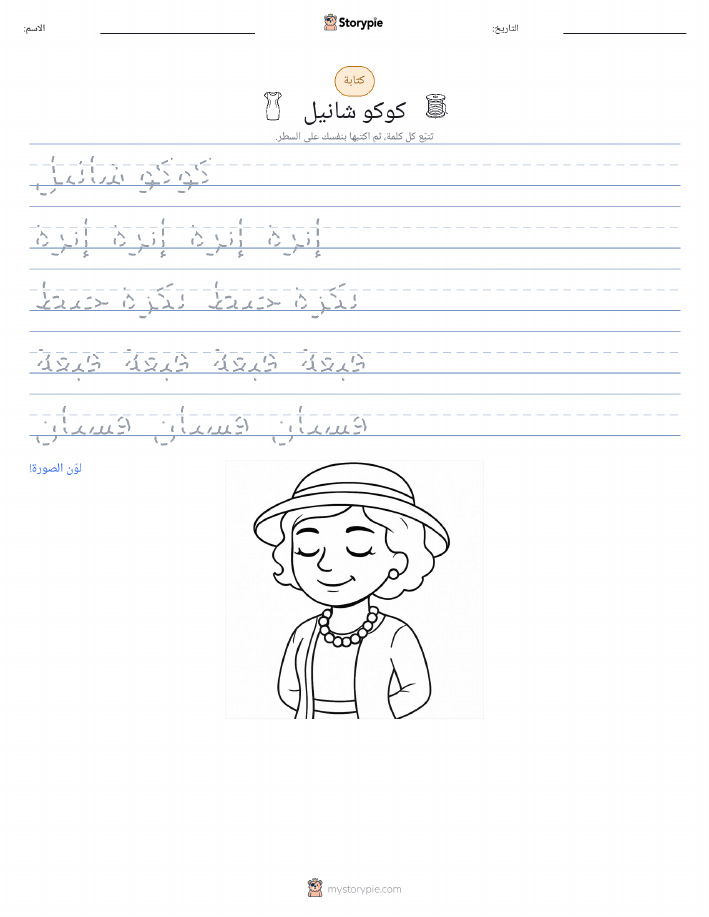 الاسم:
Storypie
التاريخ:
كتابة
كوكو شانيل
تتبّع كل كلمة، ثم اكتبها بنفسك على السطر.
كوكو شانيل
إبرة إبرة إبرة إبرة
بكرة خيط بكرة خيط
قبعة قبعة قبعة قبعة
فستان فستان فستان
لوّن الصورة!
mystorypie.com